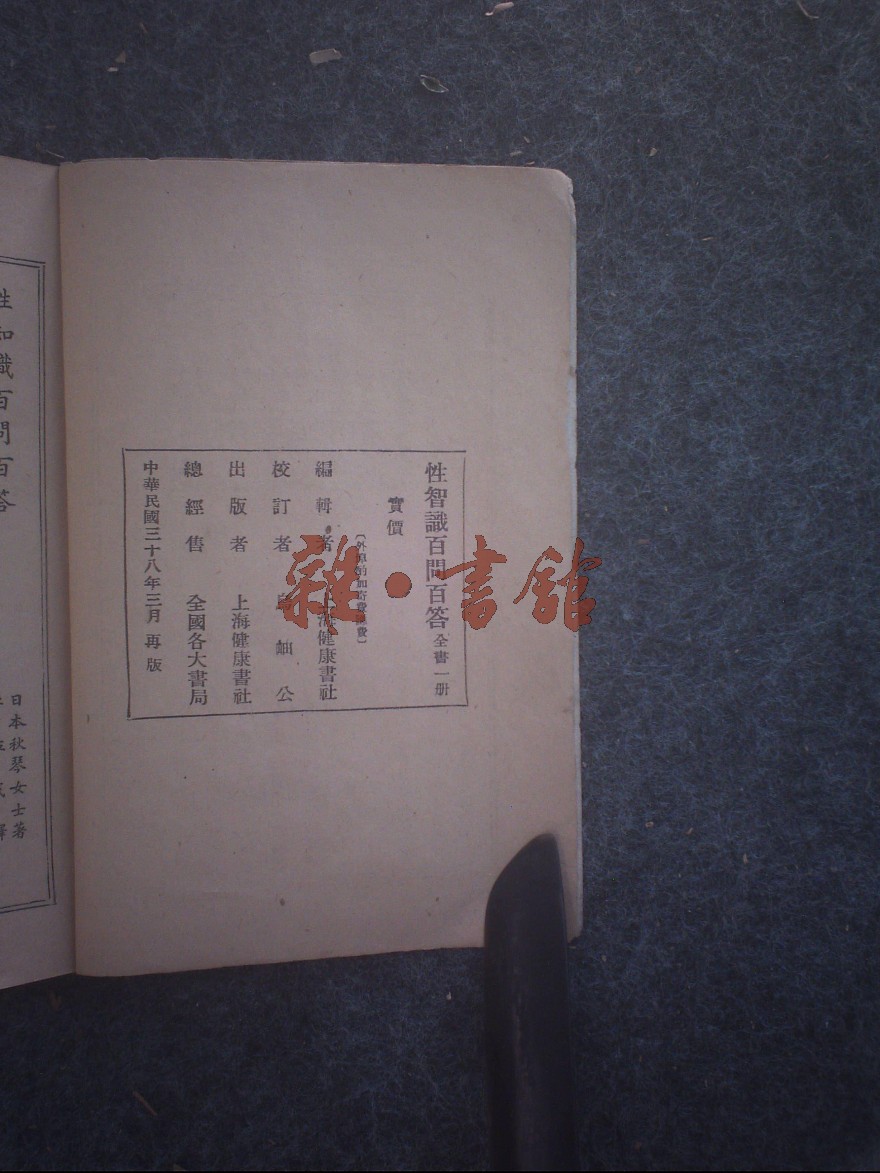 性智識百問百答 全書一册
實價
編輯者 上海健康書社
校訂者 岫公
出版者 上海健康書社
總經售 全國各大書局
中華民國三十八年三月再版
性知識百問百答
日本秋琴女士著
雜·書館